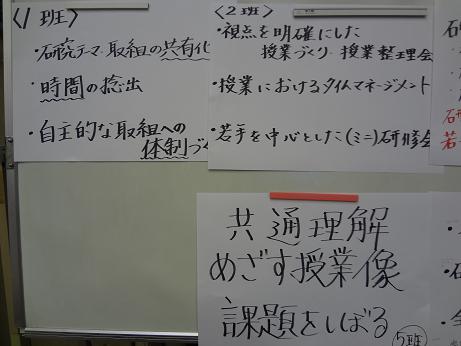 〈1班〉
・研究テーマ・取組の共有化
・時間の捻出
・自主的な取組への
体制づく
〈2班〉
・視点を明確にした
授業づくり・授業整理会
・授業におけるタイムマネージメント
・若手を中心とした(ミニ)研修会
共通理解
めざす授業像
課題をしぼる
5班